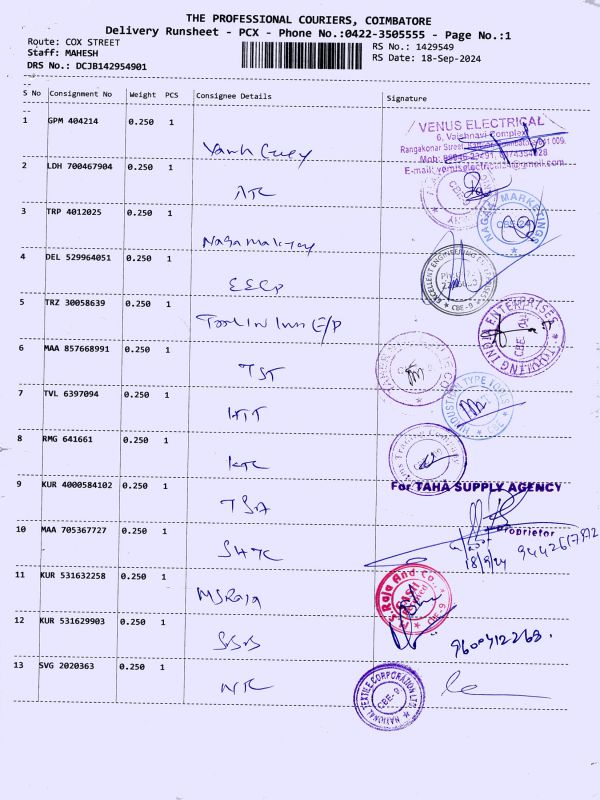 THE PROFESSIONAL COURIERS, COIMBATORE
Delivery Runsheet - PCX - Phone No.:0422-3505555 - Page No.:1
Route: COX STREET
Staff: MAHESH
DRS No.: DCJB142954901
RS No.: 1429549
RS Date: 18-Sep-2024
S No Consignment No Weight PCS Consignee Details Signature
1 GPM 404214 0.250 1
VENUS ELECTRICAL
6, Vaishnavi Complex
2 LDH 700467904 0.250 1 ATC
3 TRP 4012025 0.250 1
NAGA MARKETINGS
4 DEL 529964051 0.250 1 EECP
CBE-9
5 TRZ 30058639 0.250 1
TOOLING INDIA ENTERPRISES
CBE
6 MAA 857668991 0.250 1 TST
7 TVL 6397094 0.250 1 HTT
HINDUSTHAN TYPE
8 RMG 641661 0.250 1 KTC
9 KUR 4000584102 0.250 1 TSA
For TAHA SUPPLY AGENCY
Proprietor
10 MAA 705367727 0.250 1
18/9/24
11 KUR 531632258 0.250 1 MSRaja
S.Raja And Co.,
CBE-9
12 KUR 531629903 0.250 1
13 SVG 2020363 0.250 1 NTC
NATIONAL TEXTILE CORPORATION LTD.
CBE